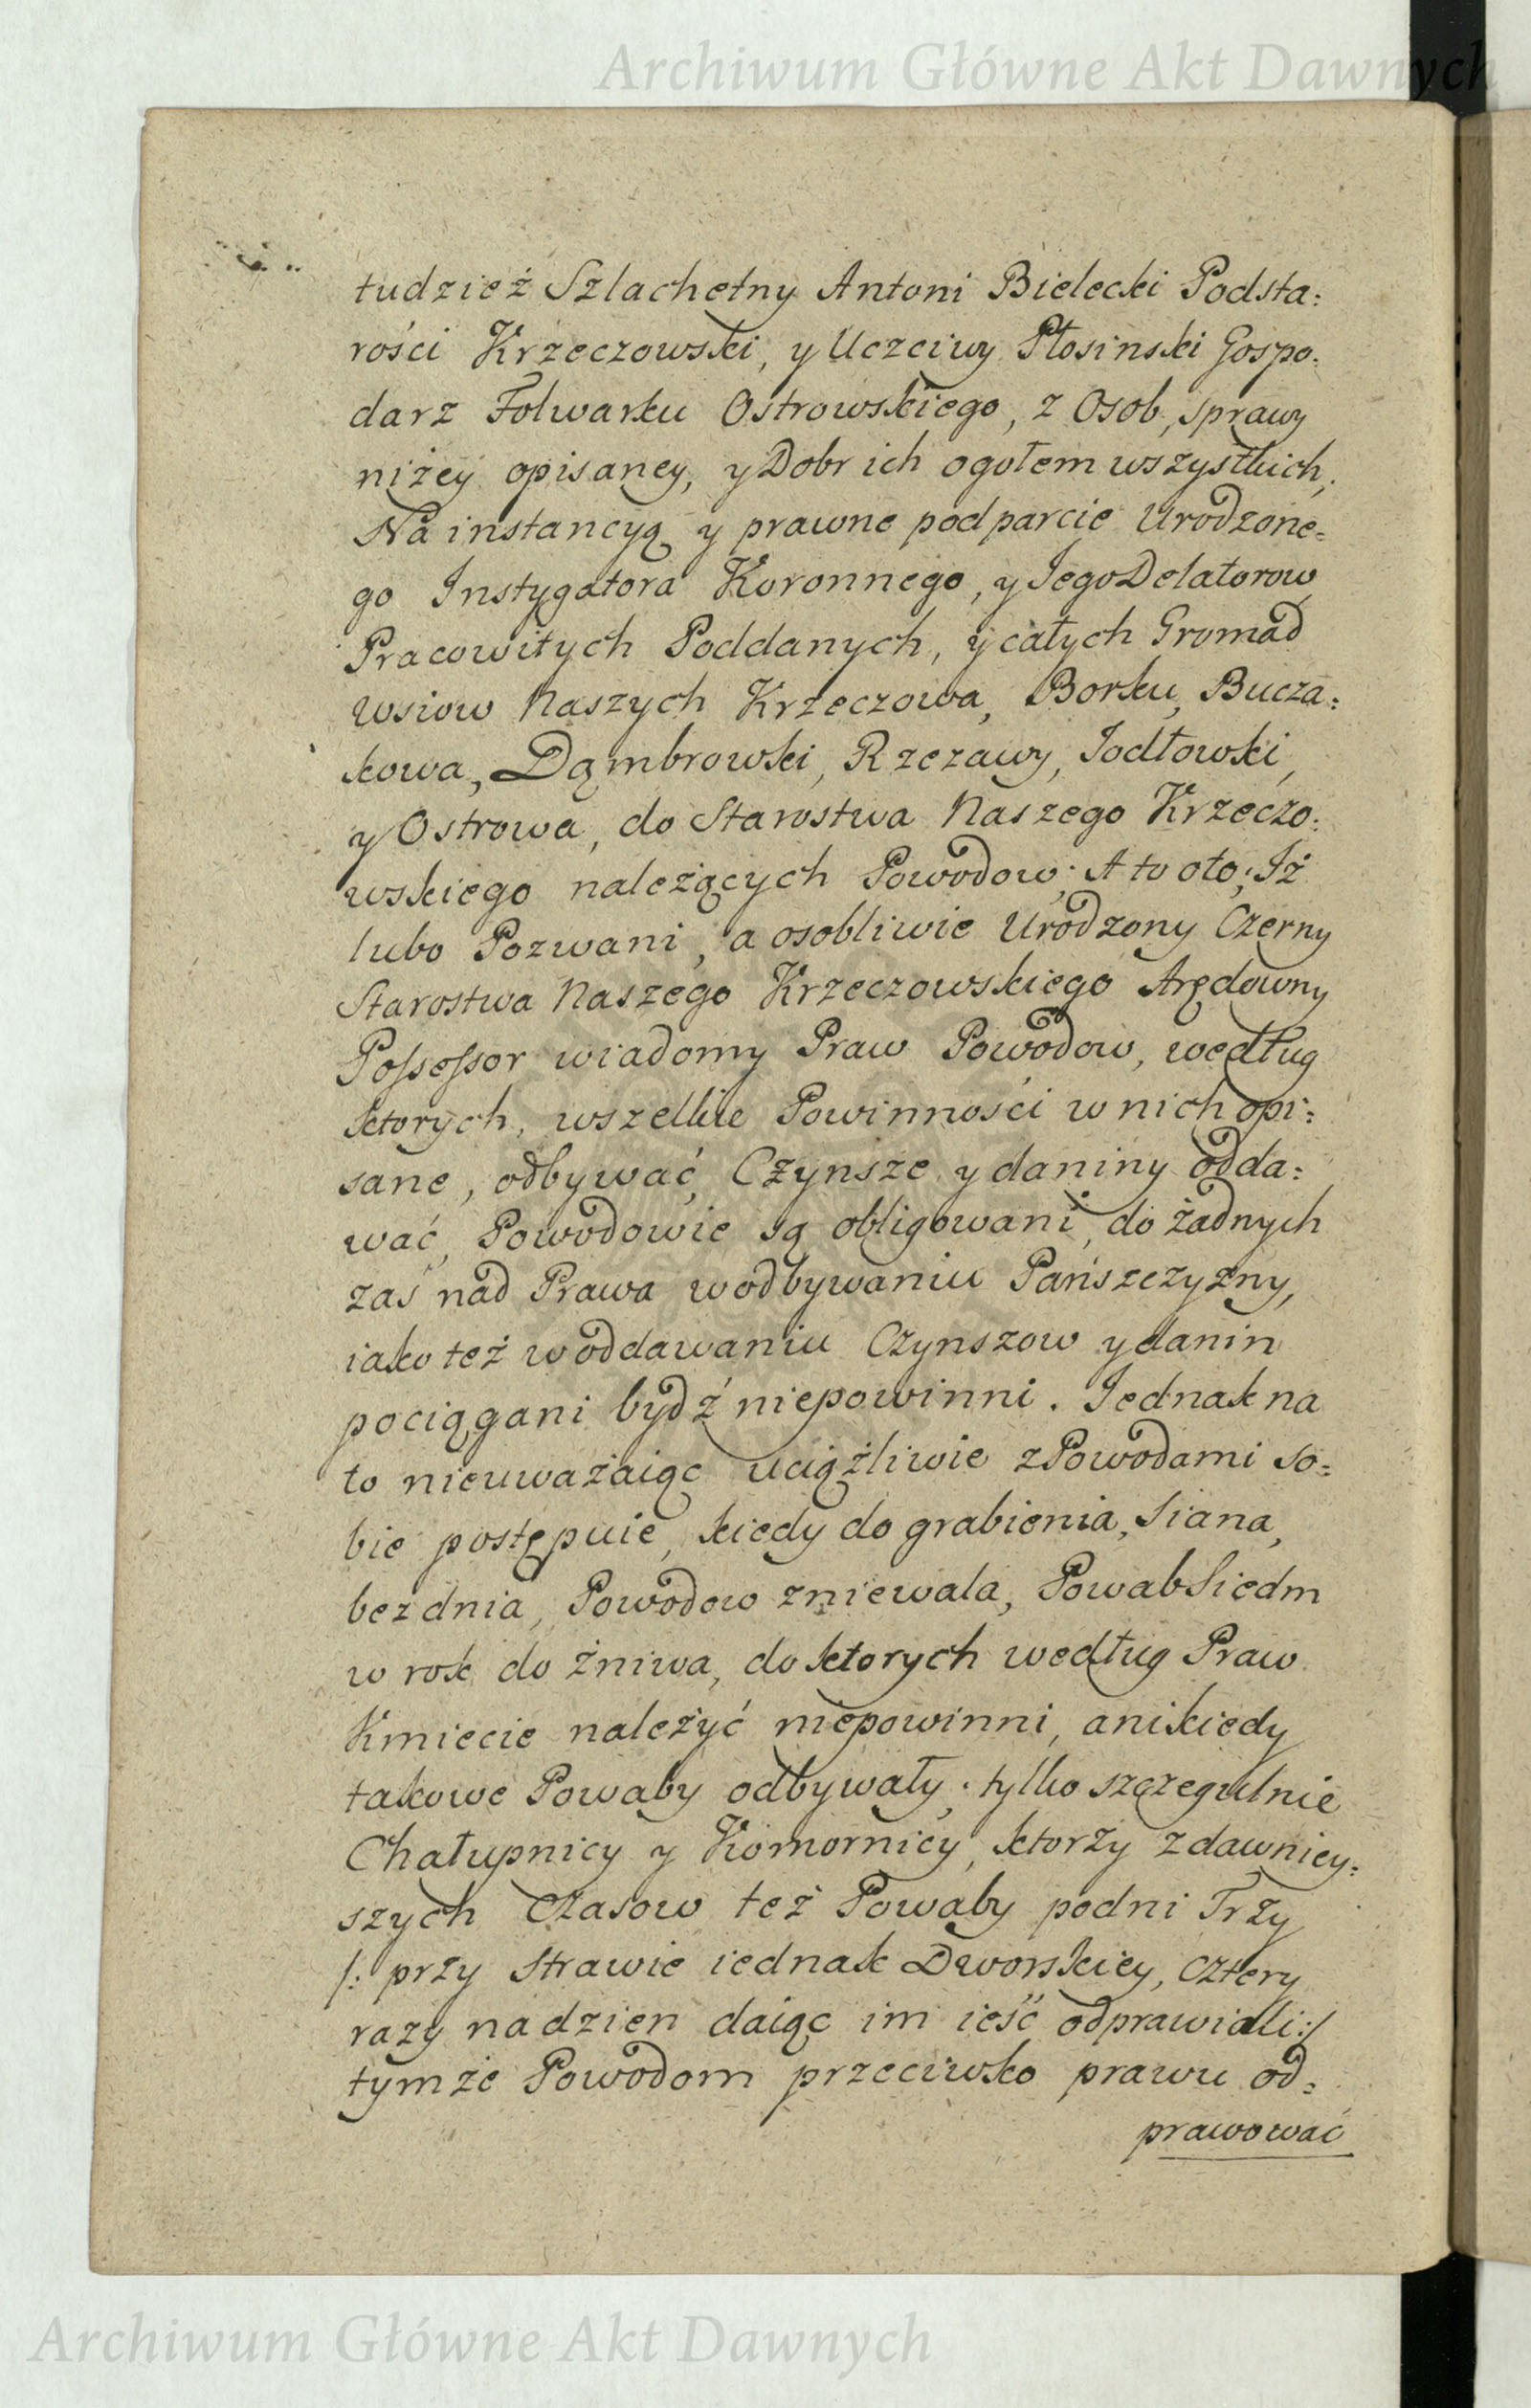 Archiwum Główne Akt Dawnych
tudzież Szlachetny Antoni Bielecki Podsta:
rości Krzeczowski, y Uczciwy Płosinski Gospo:
darz Folwarku Ostrowskiego, z Osob, sprawy
niżey opisaney, y Dobr ich ogołem wszystkich,
Na instancyą y prawne podparcie Urodzone=
go Instygatora Koronnego, y Jego Delatorow
Pracowitych Poddanych, y całych Gromad
Wsiow Naszych Krzeczowa, Borku, Bucza:
kowa, Dąmbrowski, Rzezawy, Jodłowski,
y Ostrowa, do Starostwa Naszego Krzeczo:
wskiego należących Powodow; A to oto; Iż
lubo Pozwani, a osobliwie Urodzony Czerny
Starostwa Naszego Krzeczowskiego Arędowny
Possessor wiadomy Praw Powodow, według
ktorych, wszelkie Powinności w nich opi:
sane, odbywać, Czynsze y daniny odda:
wać, Powodowie są obligowani, do żadnych
zaś nad Prawa w odbywaniu Pańszczyzny,
iako też w oddawaniu Czynszow y danin
pociągani bydź niepowinni. Jednak na
to nieuważaiąc uciążliwie z Powodami so=
bie postępuie, kiedy do grabienia, Siana,
bez dnia, Powodow zniewala, Powab Siedm
w rok do żniwa, do ktorych według Praw
Kmiecie należyć niepowinni, ani kiedy
takowe Powaby odbywały, tylko szczegulnie
Chałupnicy y Komornicy, ktorzy z dawniey:
szych Czasow też Powaby po dni Trzy
/: przy Strawie iednak Dworskiey, cztery
razy na dzien daiąc im ieść odprawiali:/
tymże Powodom przeciwko prawu od=
prawować
Archiwum Główne Akt Dawnych